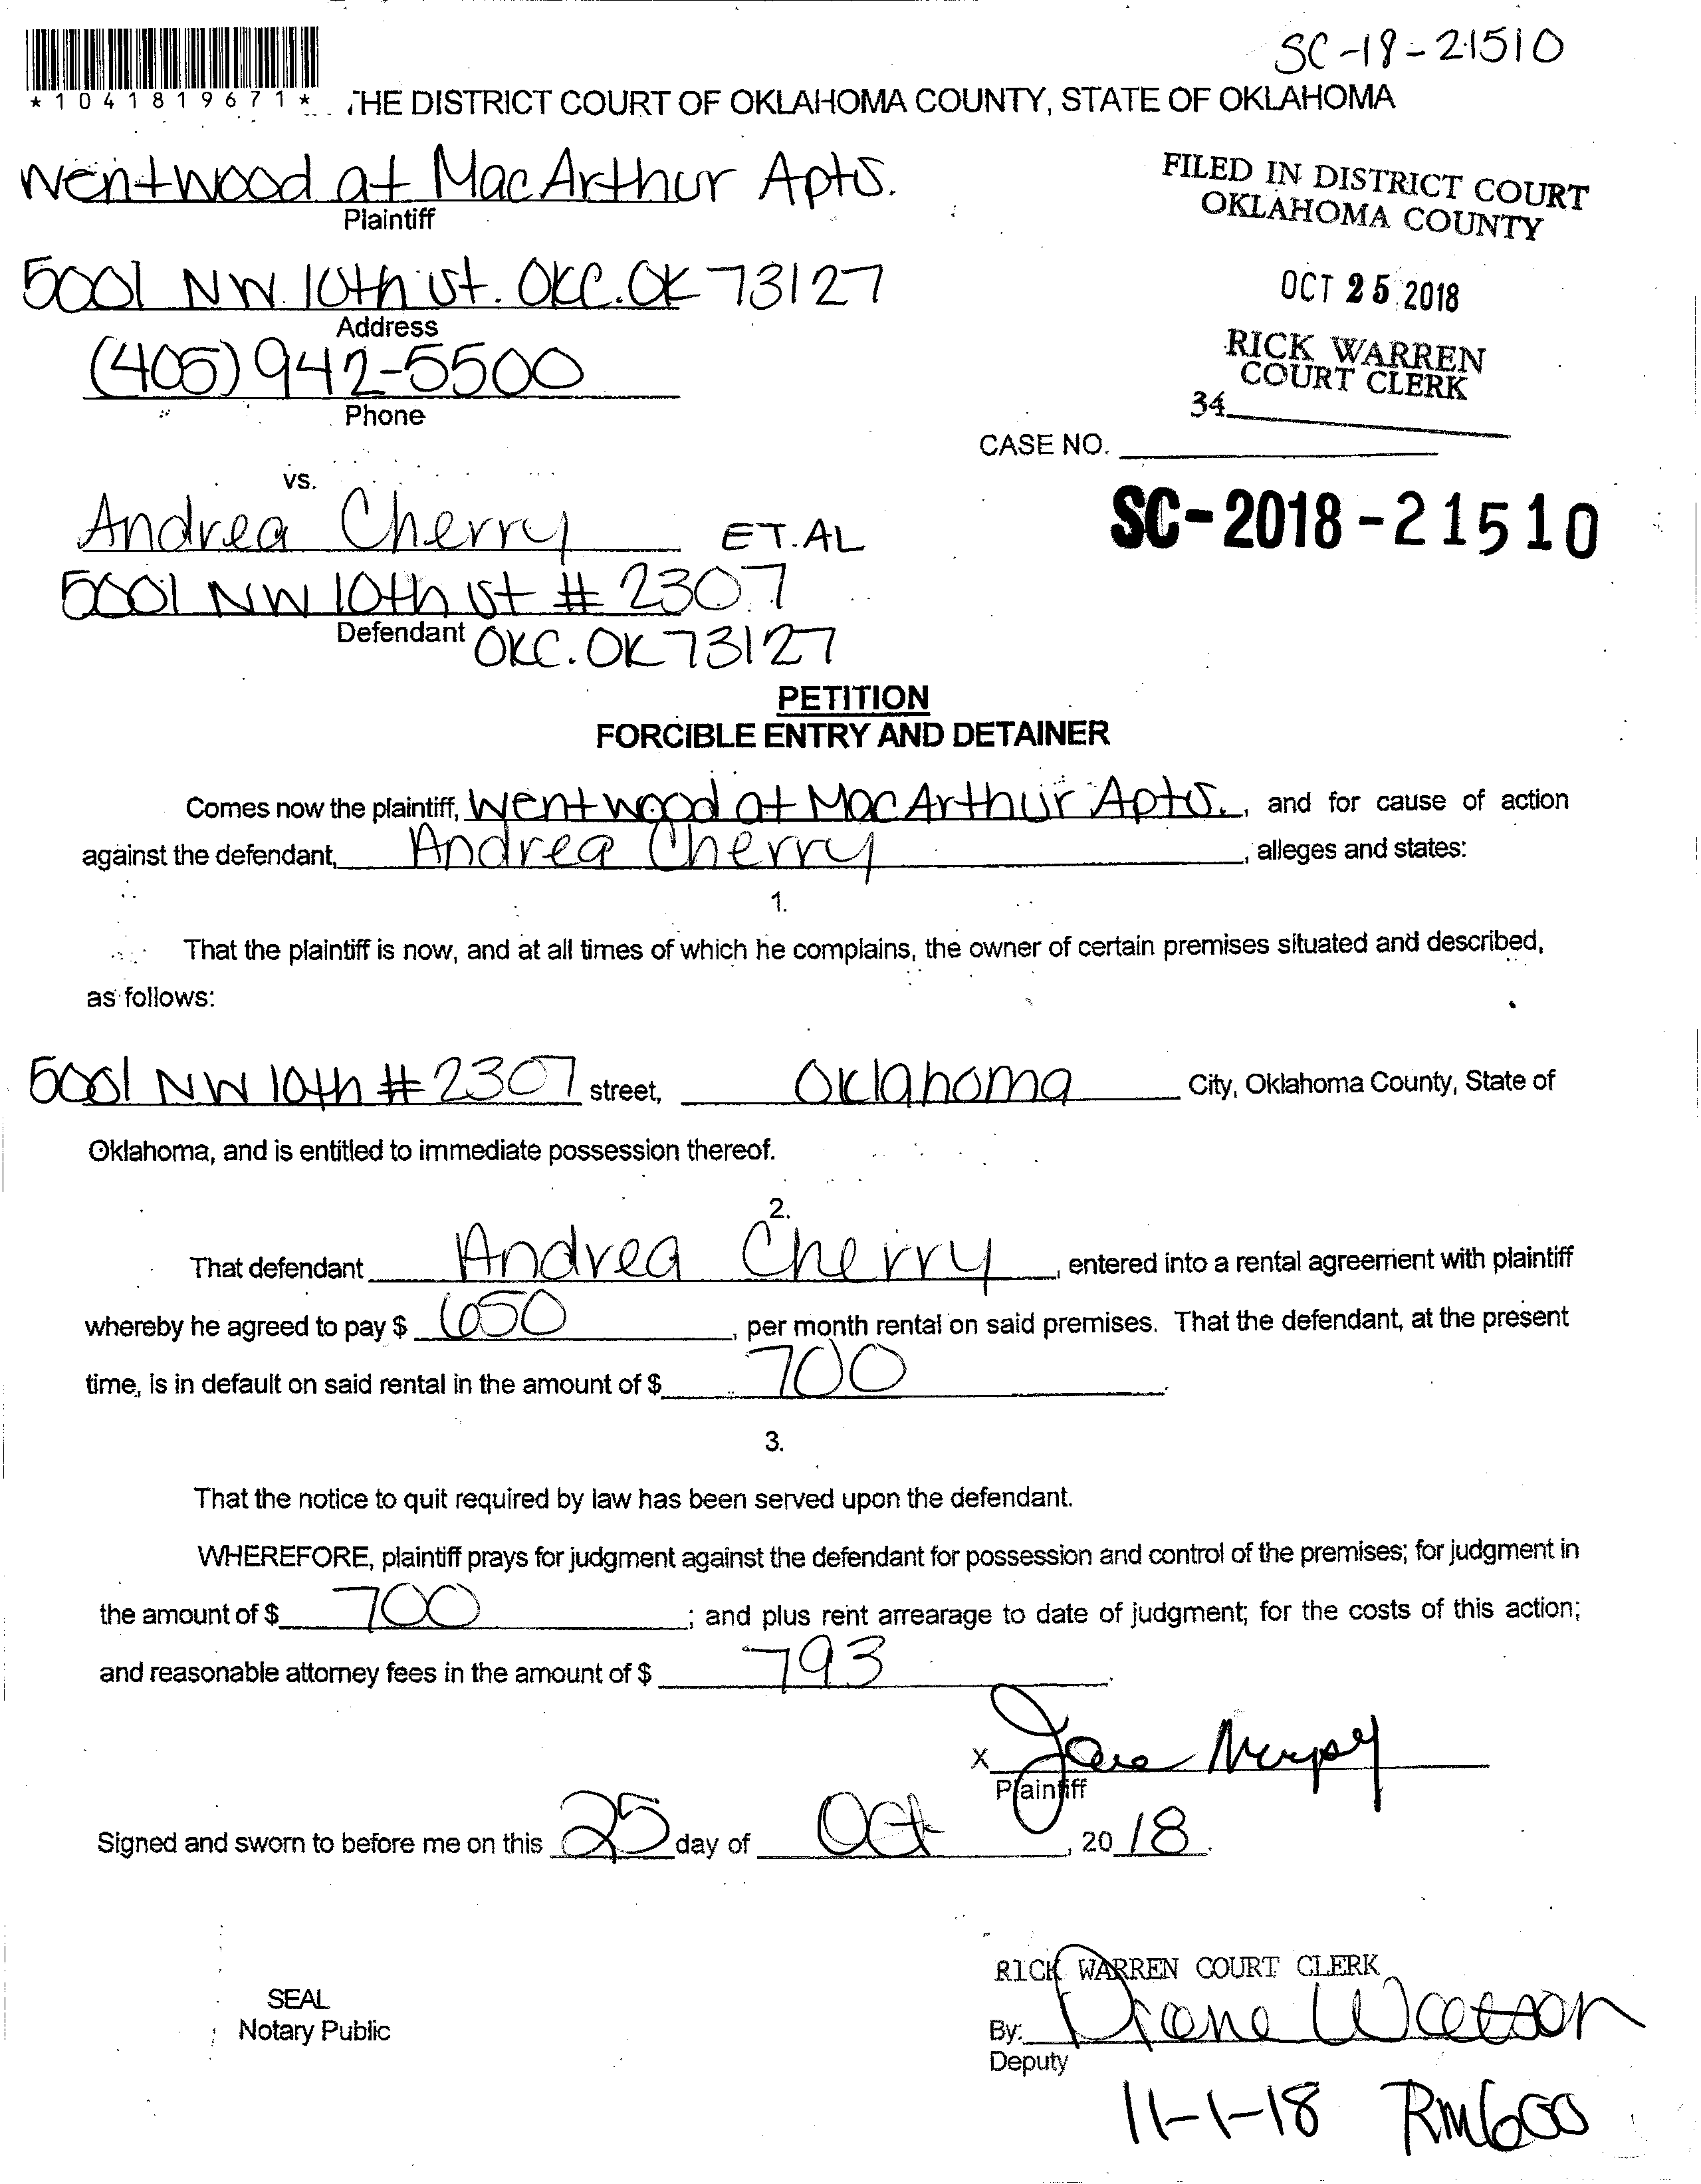 SC-18-21510
*1041819671*
THE DISTRICT COURT OF OKLAHOMA COUNTY, STATE OF OKLAHOMA
Wentwood at MacArthur Apts.
Plaintiff
FILED IN DISTRICT COURT
OKLAHOMA COUNTY
5001 NW 10th st. OKC. OK 73127
Address
OCT 25 2018
(405) 942-5500
Phone
RICK WARREN
COURT CLERK
34
CASE NO.
vs.
SC-2018-21510
Andrea Cherry ET.AL
5001 NW 10th st # 2307
Defendant OKC. OK 73127
PETITION
FORCIBLE ENTRY AND DETAINER
Comes now the plaintiff, Wentwood at MacArthur Apts., and for cause of action
against the defendant, Andrea Cherry, alleges and states:
1.
That the plaintiff is now, and at all times of which he complains, the owner of certain premises situated and described,
as follows:
5001 NW 10th # 2307 street, Oklahoma City, Oklahoma County, State of
Oklahoma, and is entitled to immediate possession thereof.
2.
That defendant Andrea Cherry, entered into a rental agreement with plaintiff
whereby he agreed to pay $ 650, per month rental on said premises. That the defendant, at the present
time, is in default on said rental in the amount of $ 700.
3.
That the notice to quit required by law has been served upon the defendant.
WHEREFORE, plaintiff prays for judgment against the defendant for possession and control of the premises; for judgment in
the amount of $ 700; and plus rent arrearage to date of judgment; for the costs of this action;
and reasonable attorney fees in the amount of $ 793.
X
Plaintiff
Signed and sworn to before me on this 25 day of Oct, 2018.
RICK WARREN COURT CLERK
SEAL
Notary Public
By: Diane Watson
Deputy
11-1-18 Rm600